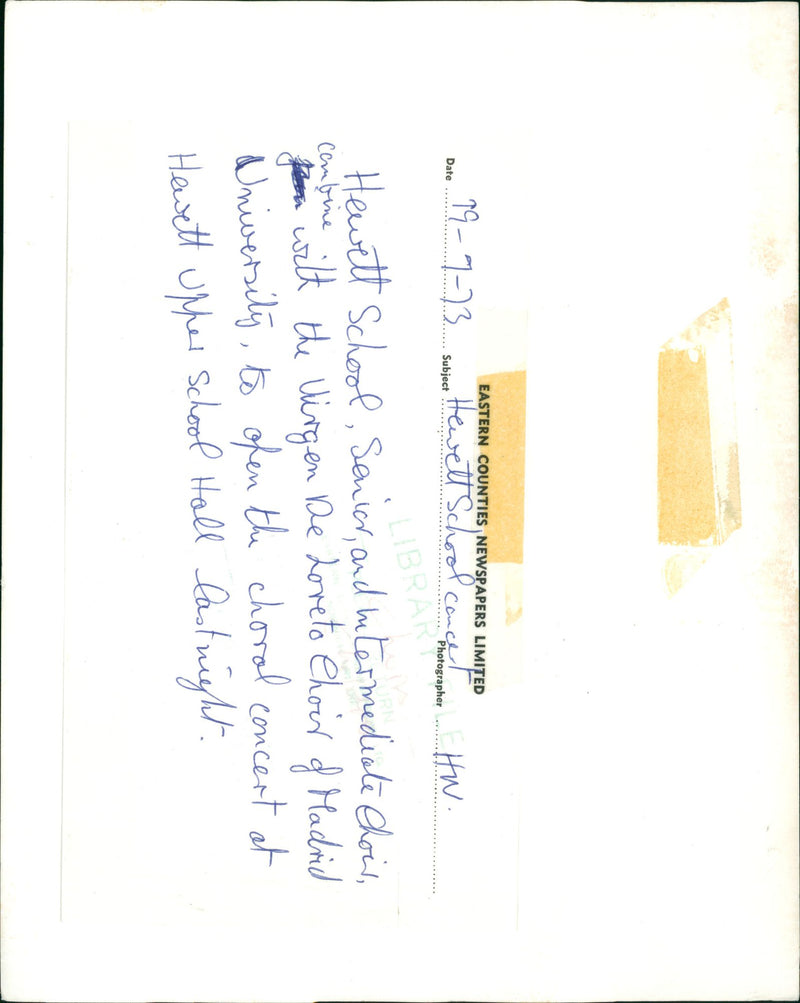 EASTERN COUNTIES NEWSPAPERS LIMITED
Date 19-9-73 Subject Hewett School concert Photographer HW.
LIBRARY FILE
Hewett School, Senior, and Intermediate Choir,
combine with the Virgen De Loreto Choir of Madrid
University, to open the choral concert at
Hewett Upper School Hall last night.